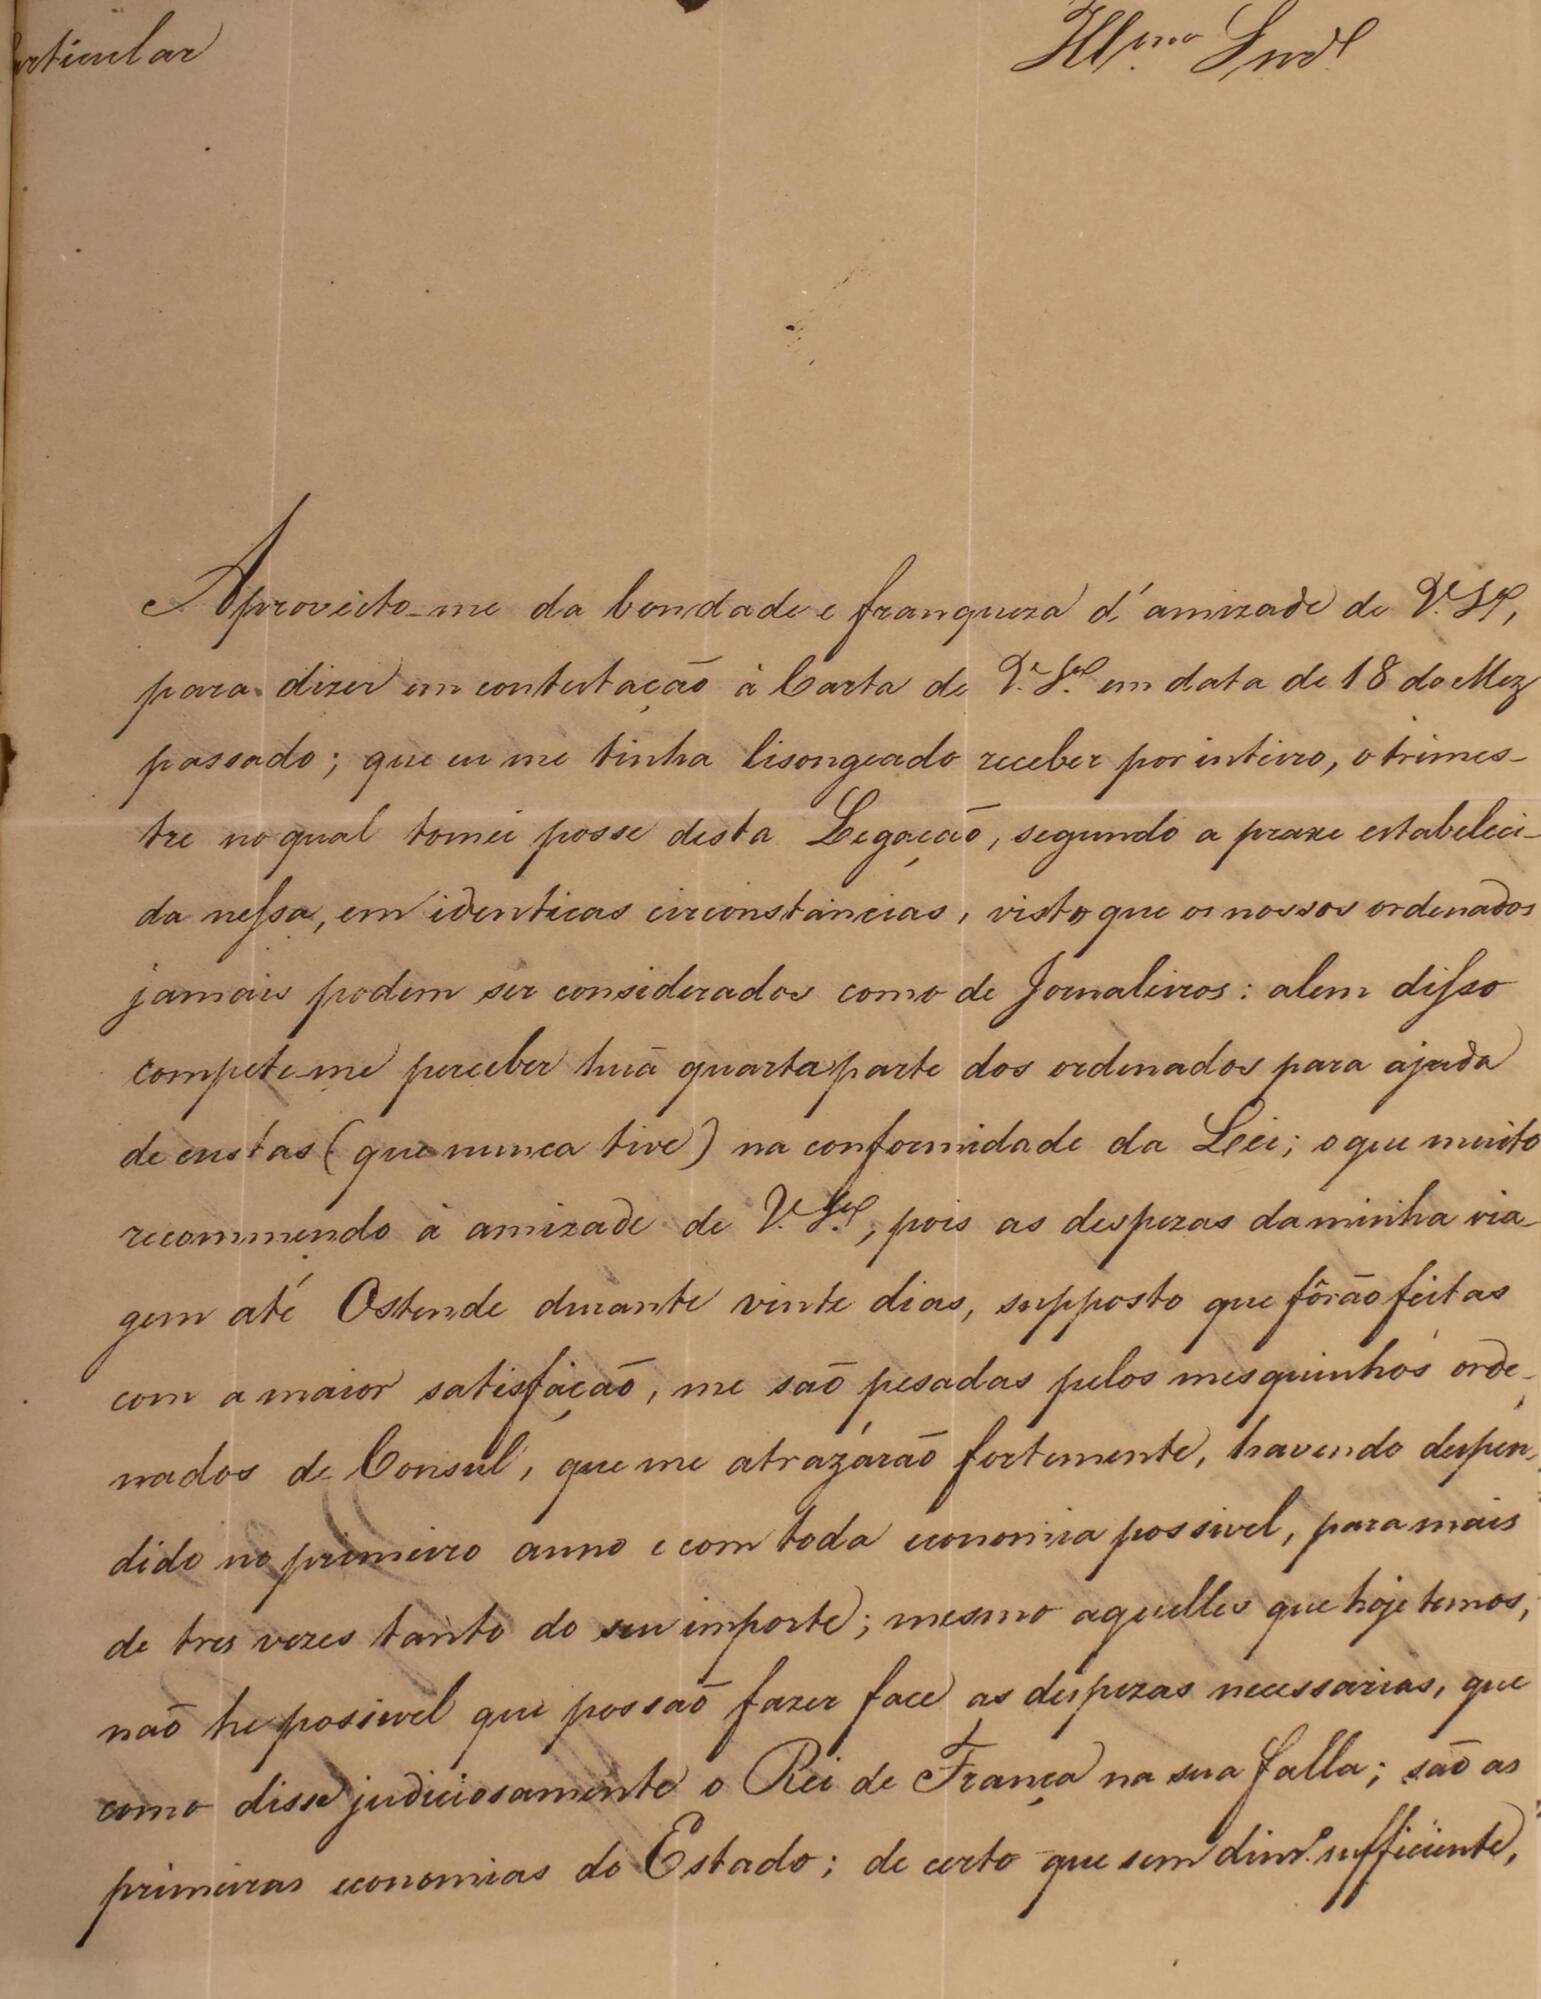 articular
Ill.mo Snr.
Aproveito-me da bondade e franqueza d'amizade de V. S.ª,
para dizer em contestação á Carta de V. S.ª em data de 18 do Mez
passado; que eu me tinha lisongeado receber por inteiro, o trimes-
tre no qual tomei posse desta Legação, segundo a praxe estabeleci-
da nessa, em identicas circonstancias, visto que os nossos ordenados
jamais podem ser considerados como de Jornaleiros: alem disso
compete-me perceber huã quarta parte dos ordenados para ajuda
de custas (que nunca tive) na conformidade da Lei; o que muito
recommendo á amizade de V. S.ª, pois as despezas da minha via-
gem até Ostende durante vinte dias, supposto que fôrão feitas
com a maior satisfação, me são pesadas pelos mesquinhos orde-
nados de Consul, que me atrazárão fortemente, havendo despen-
dido no primeiro anno e com toda economia possivel, para mais
de tres vezes tanto do seu importe; mesmo aquelles que hoje temos,
não he posivel que possaõ fazer face as despezas necessarias, que
como disse judiciosamente o Rei de França na sua falla; são as
primeiras economias do Estado; de certo que sem dinr.º sufficiente,